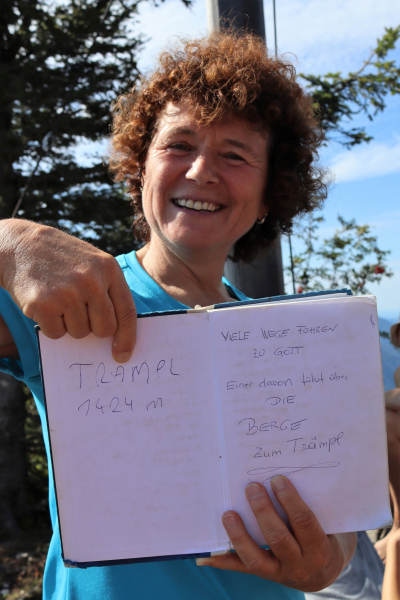 TRÄMPL
1424 m
VIELE WEGE FÜHREN
ZU GOTT
Einer davon führt über
DIE
BERGE
zum Trämpl